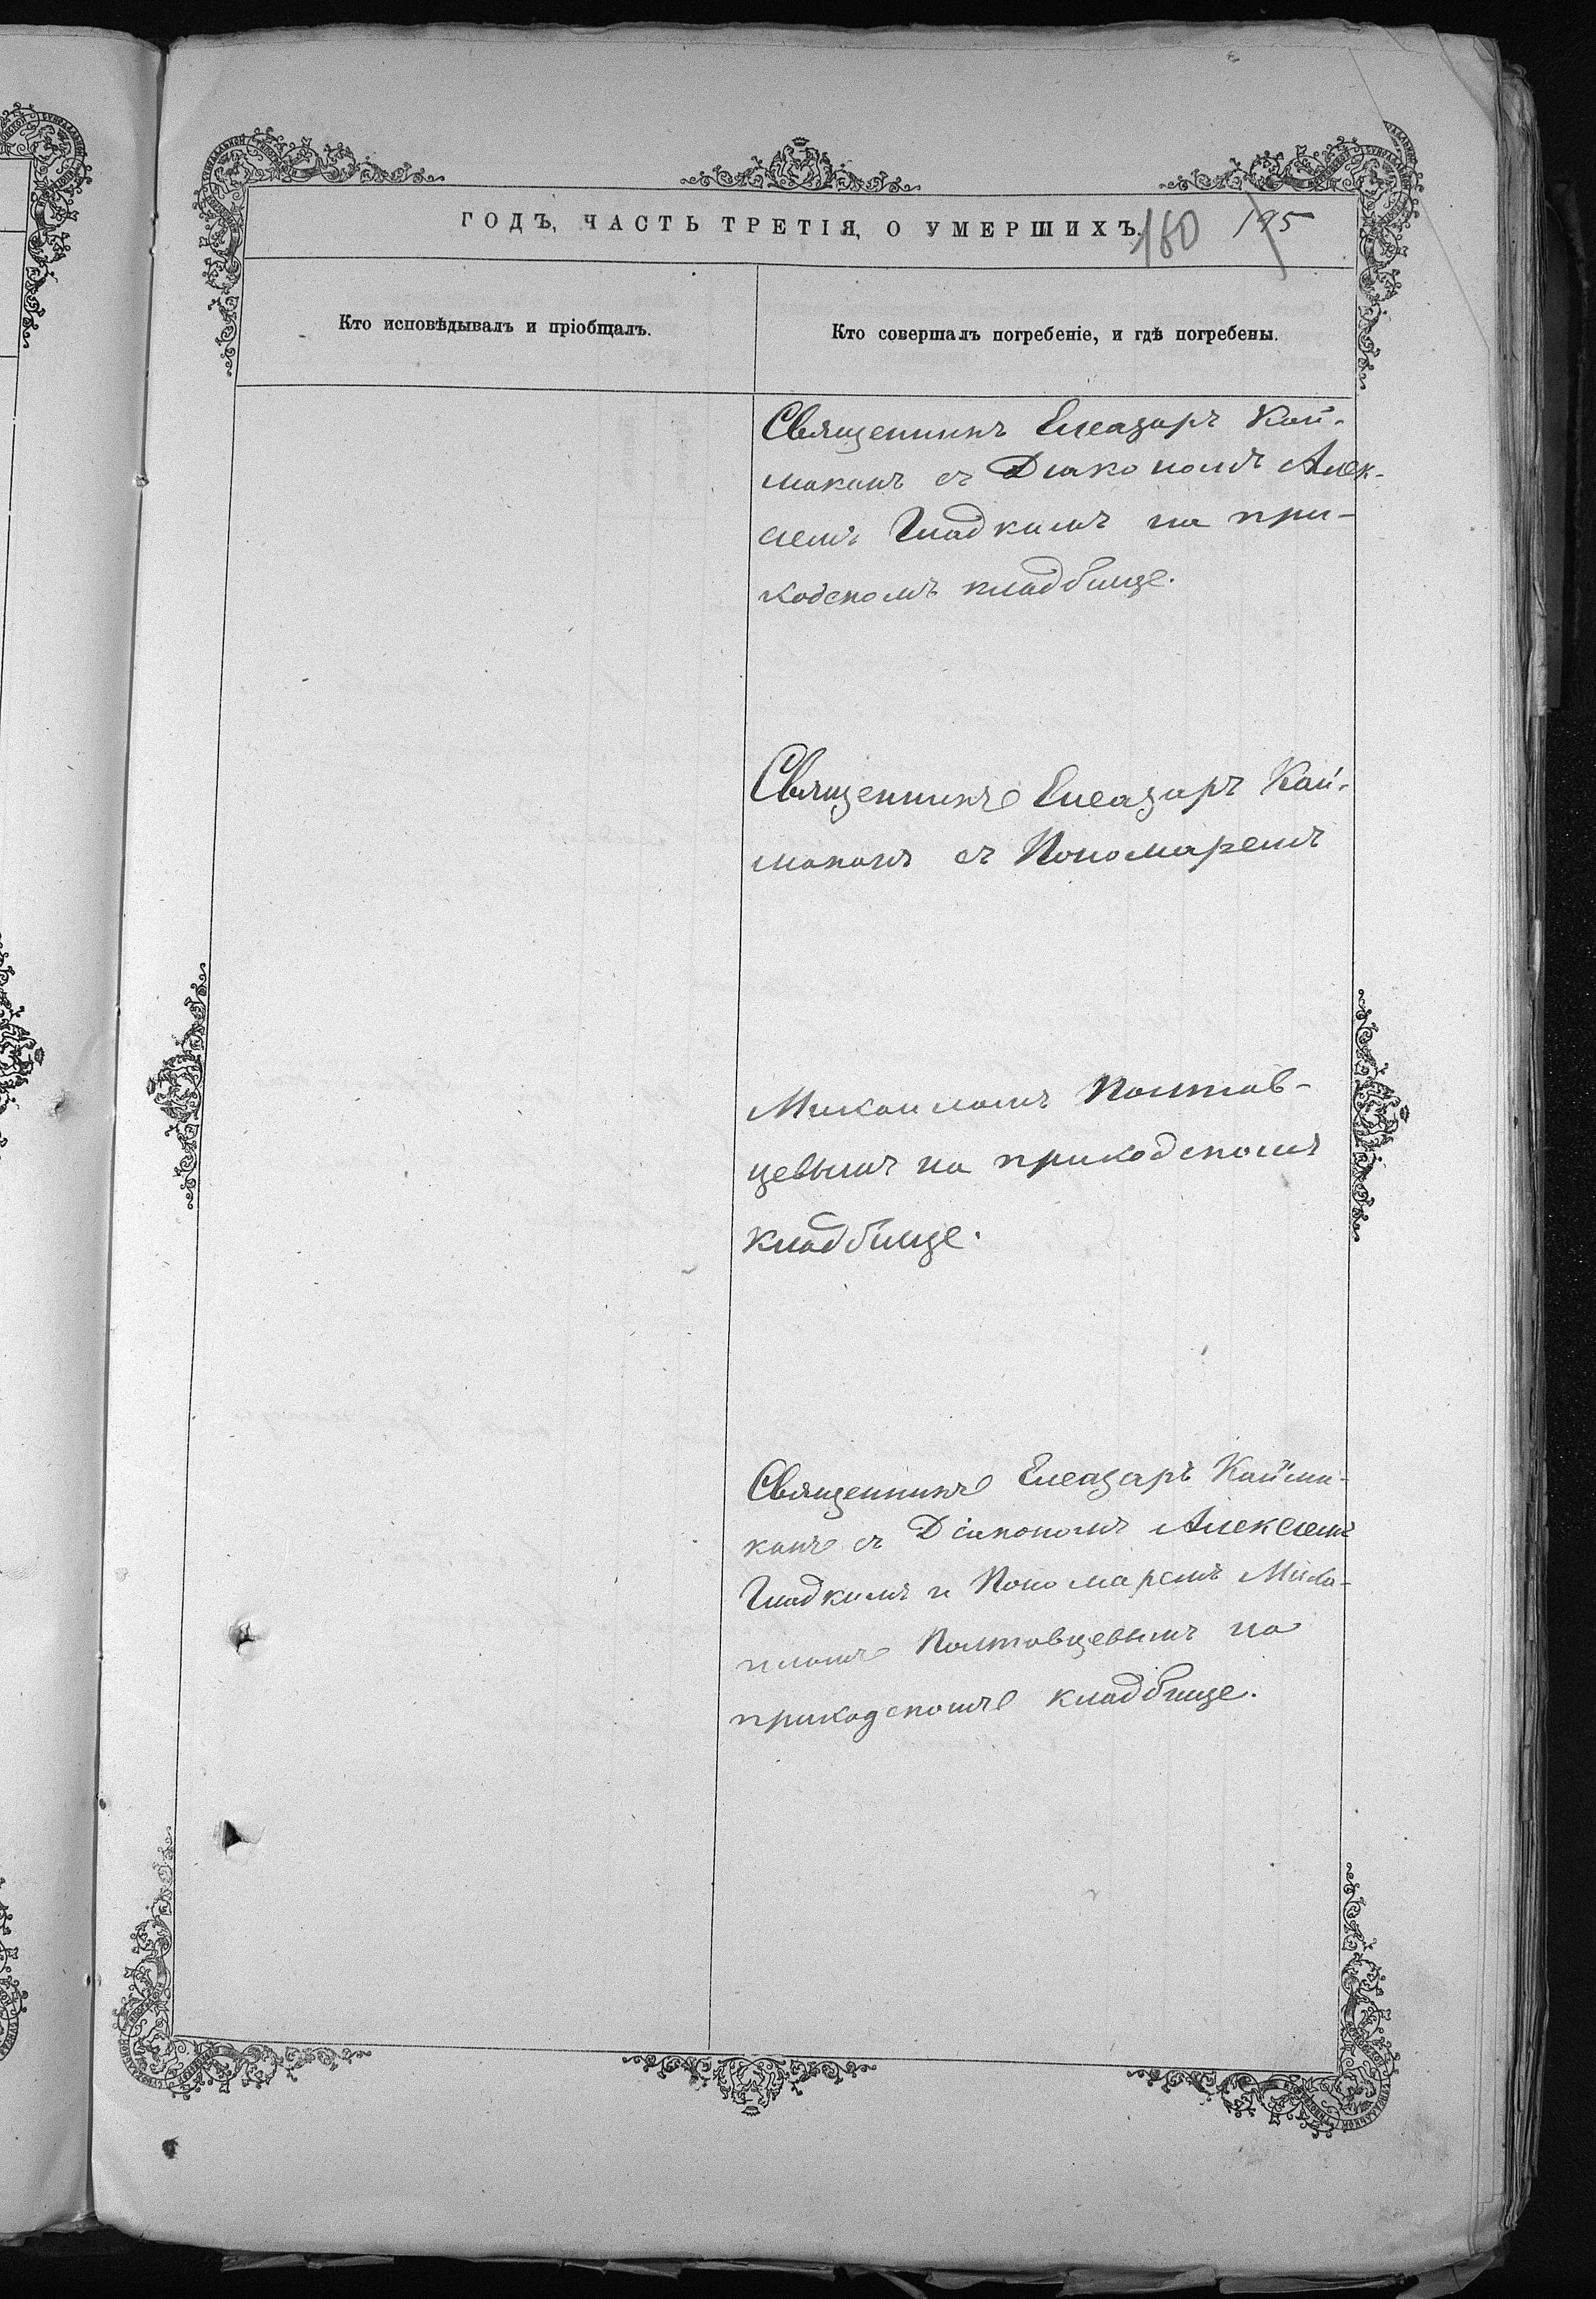 ГОДЪ, ЧАСТЬ ТРЕТІЯ, О УМЕРШИХЪ. 180 195
Кто исповѣдывалъ и пріобщалъ.
Кто совершалъ погребеніе, и гдѣ погребены.
Священникъ Елеазаръ Кай-
маканъ съ Діакономъ Алек-
сіемъ Гладкимъ на при-
ходскомъ кладбище.
Священникъ Елеазаръ Кай-
маканъ съ Пономаремъ
Михаиломъ Полтав-
цевымъ на приходскомъ
кладбище.
Священникъ Елеазаръ Кайма-
канъ съ Діакономъ Алексіемъ
Гладкимъ и Пономаремъ Миха-
иломъ Полтавцевымъ на
приходскомъ кладбище.